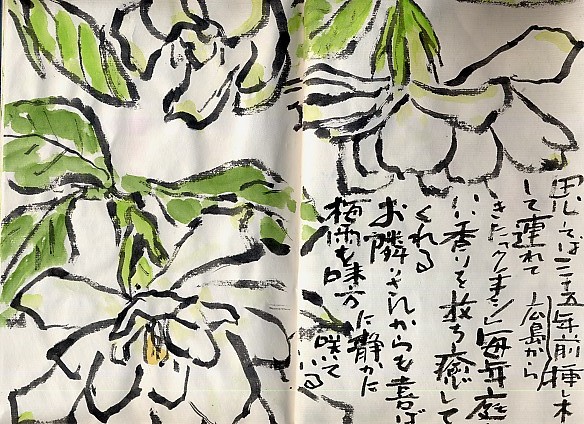 思えば二十五年前挿し木
して連れて 広島から
きた「クチナシ」毎年庭
い香りを放ち癒して
くれる
お隣 からも喜ば
梅雨を味方に静かに
咲いている